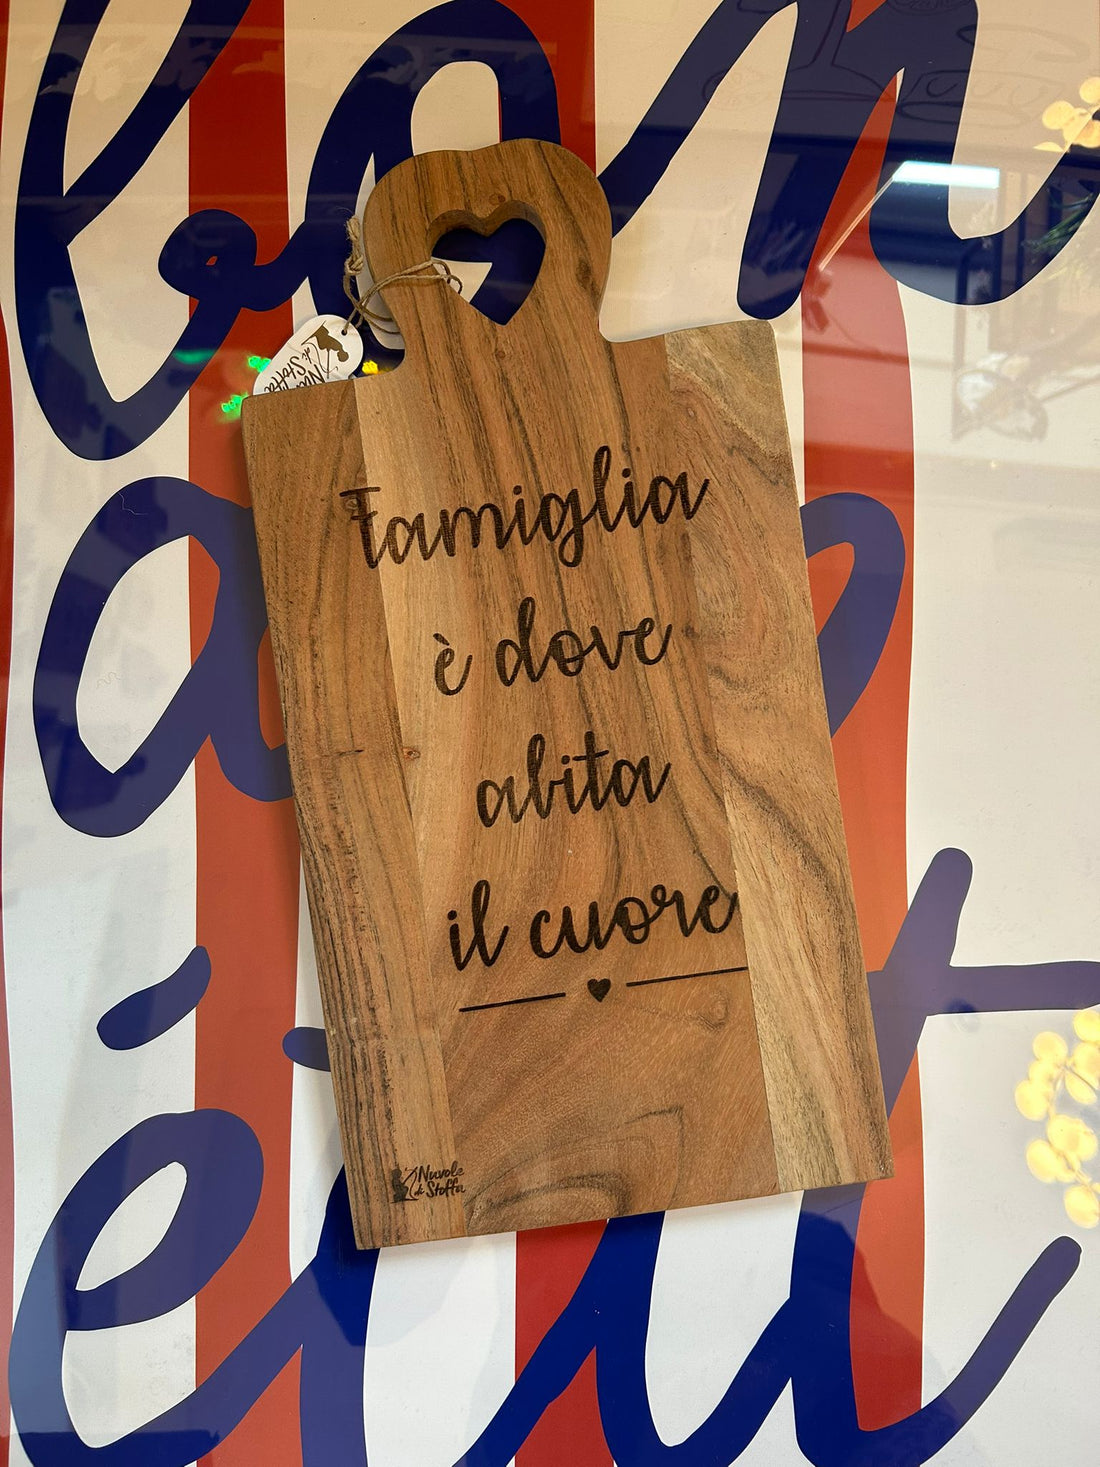 bon
à
été
Nuvole
di Stoffa
Famiglia
è dove
abita
il cuore
Nuvole
di Stoffa